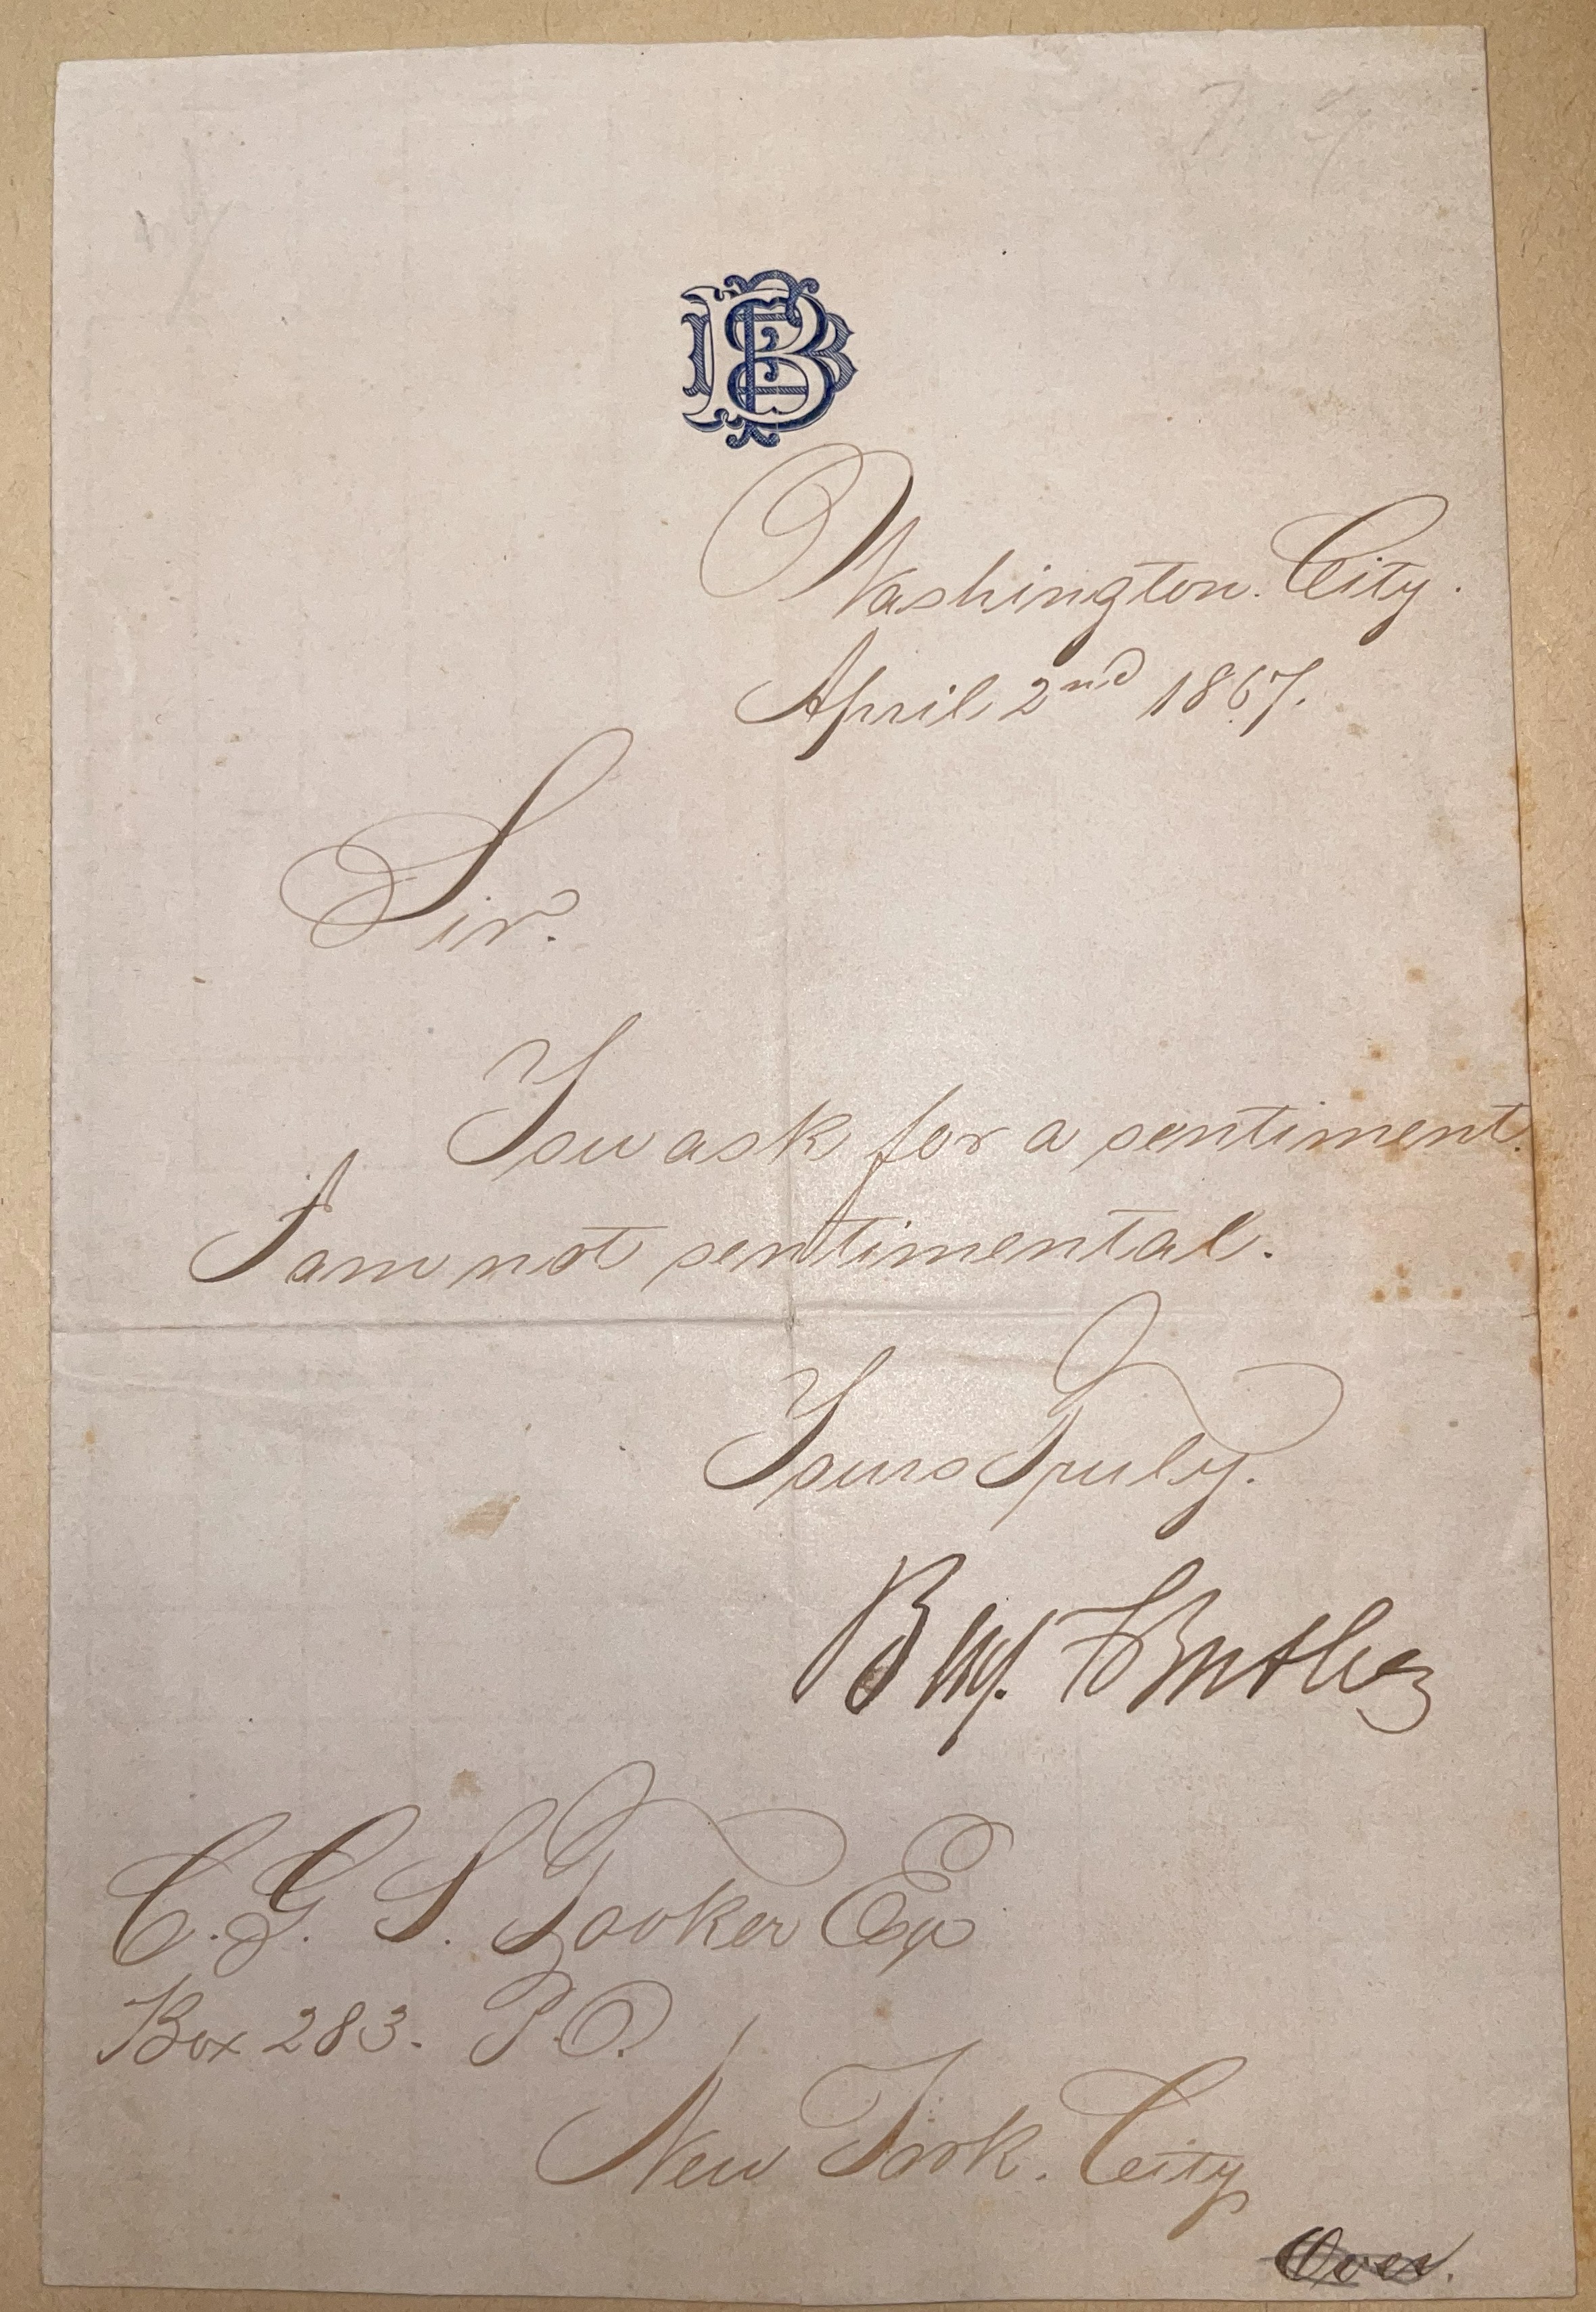 BFB
Washington. City.
April 2nd 1867.
Sir.
You ask for a sentiment.
I am not sentimental.
Yours Truly.
Benj. F Butler
C. G. S. Tooker Esq
Box 283. P.O.
New York. City
Over.